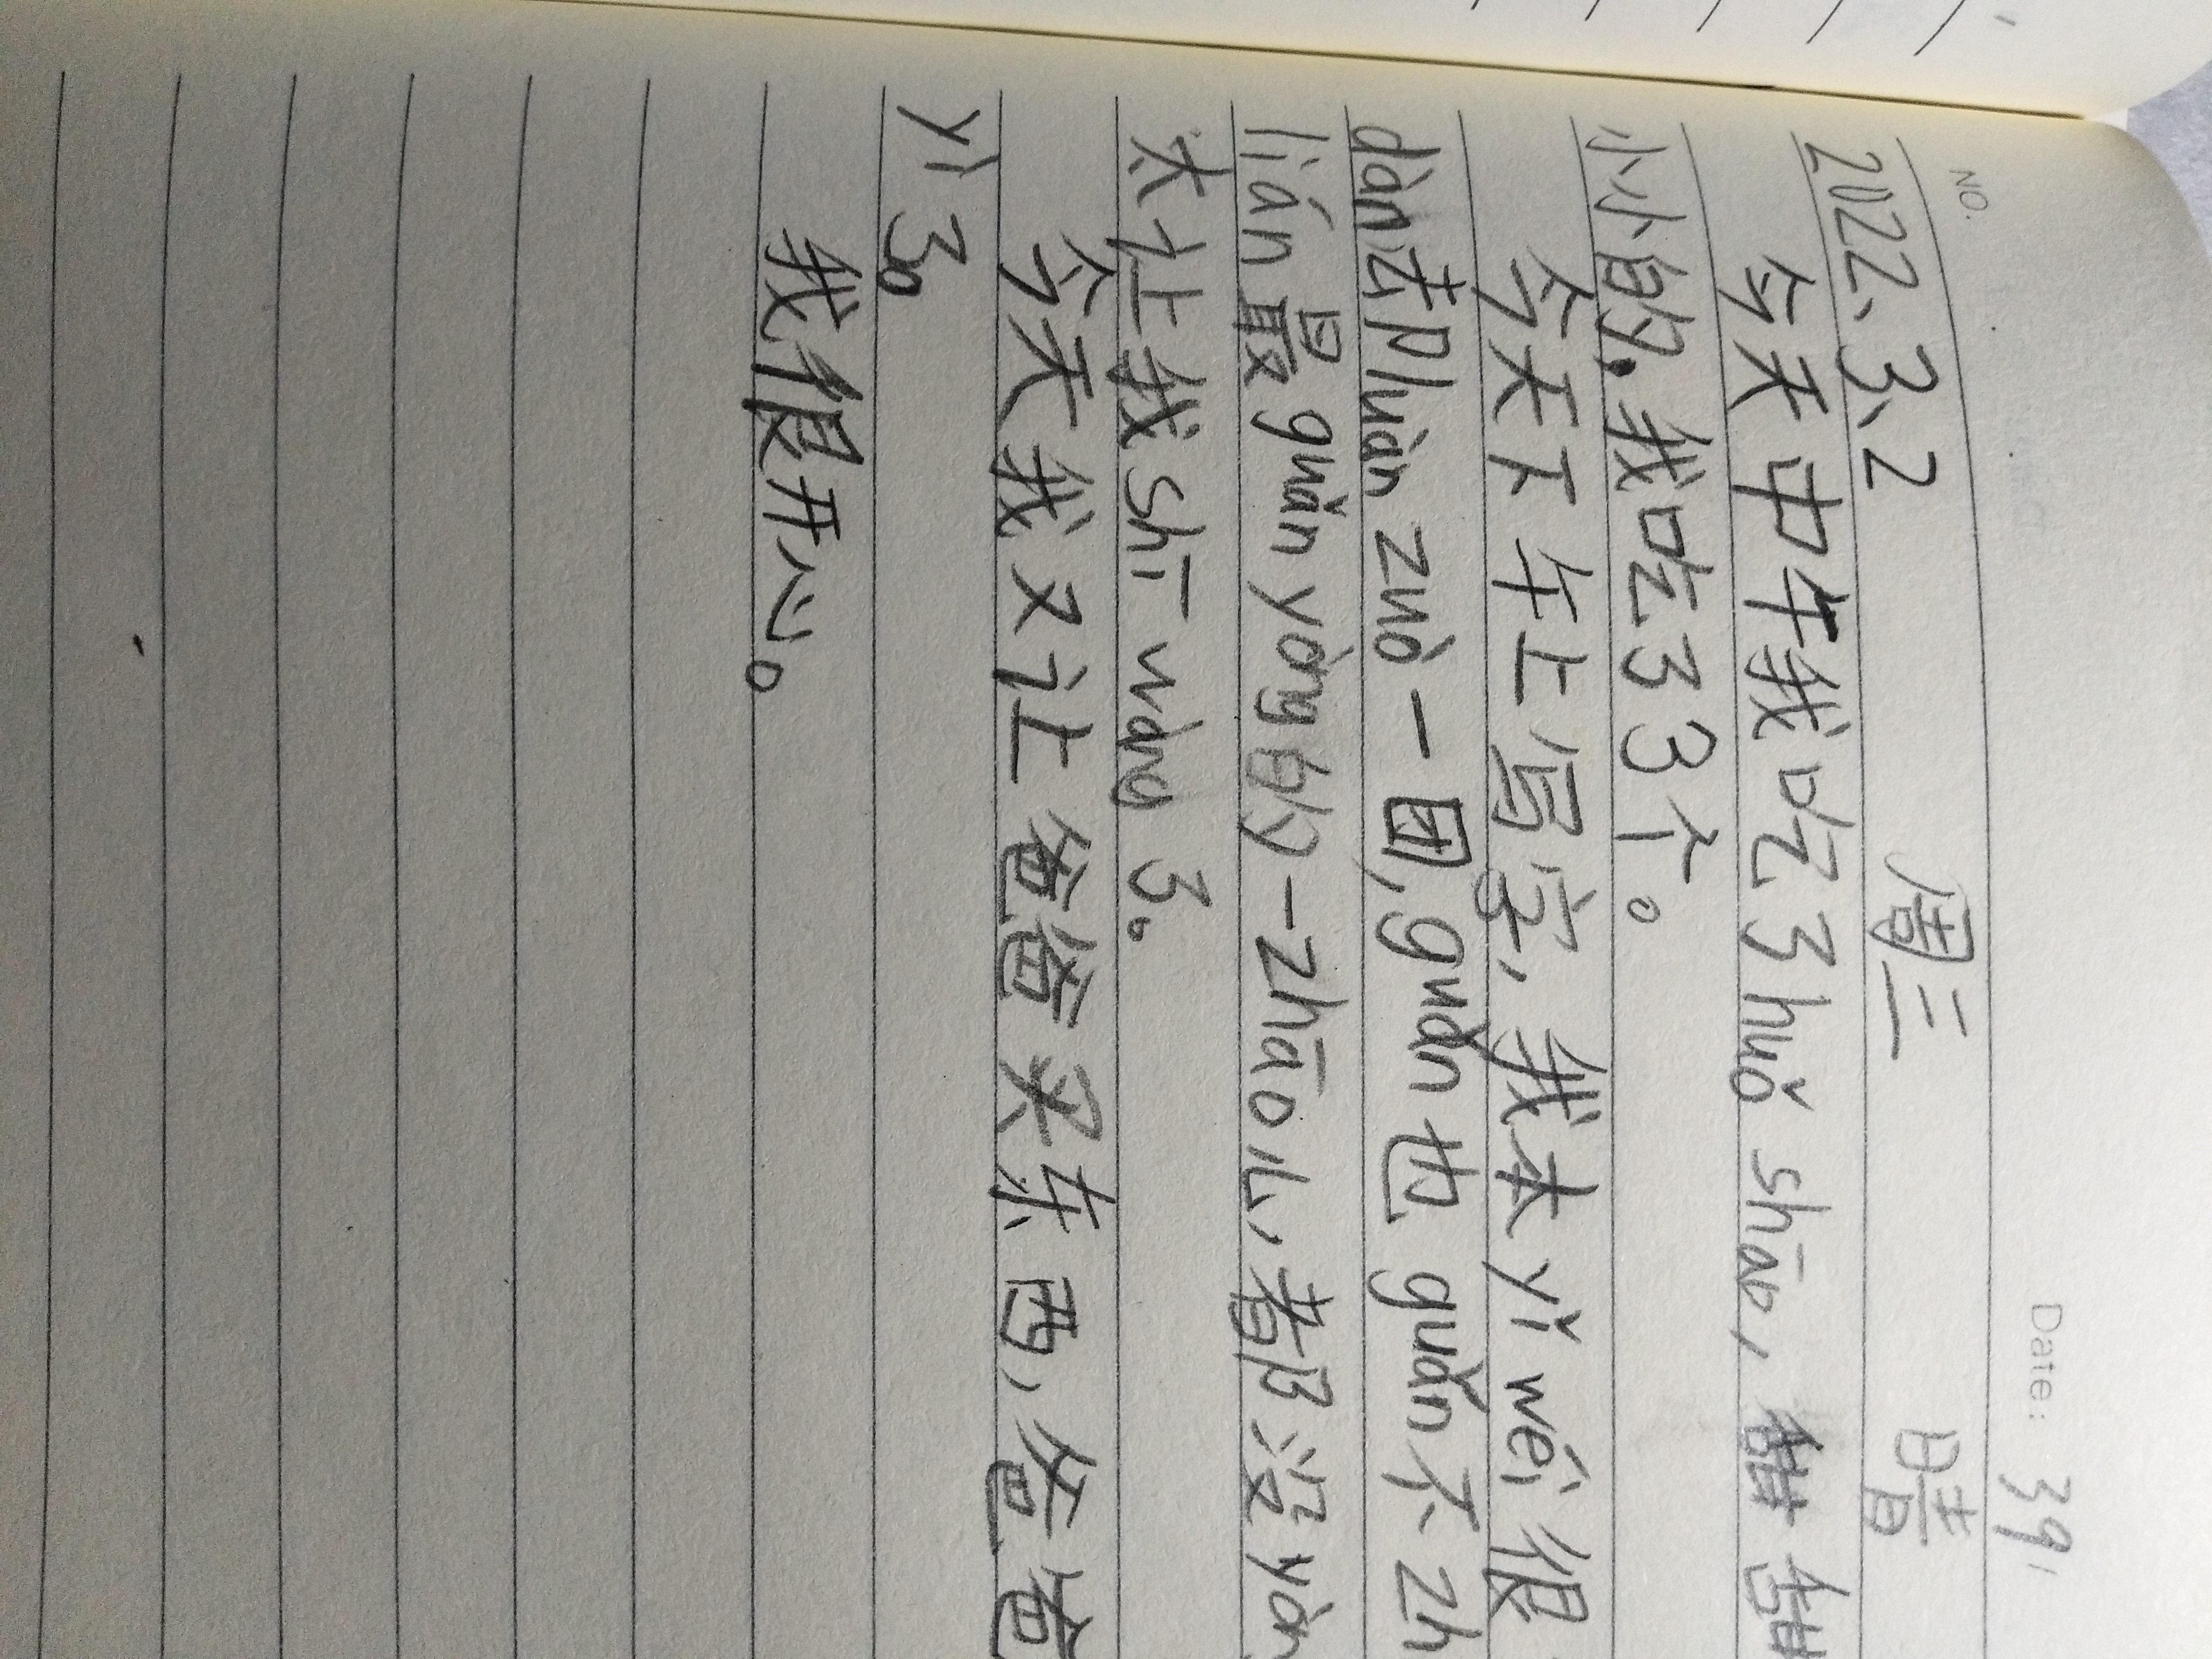 NO. Date: 39
2022、3、2 周三 晴
今天中午我吃了huǒ shāo，甜甜
小小的，我吃了3个。
今天下午上写字，我本yǐ wéi很
dàn却luàn zuò一团，guǎn也guǎn不zh
lián最guǎn yòng的一zhāo儿，都没yòn
太让我shī wàng了。
今天我又让爸爸买东西，爸爸
yì了。
我很开心。